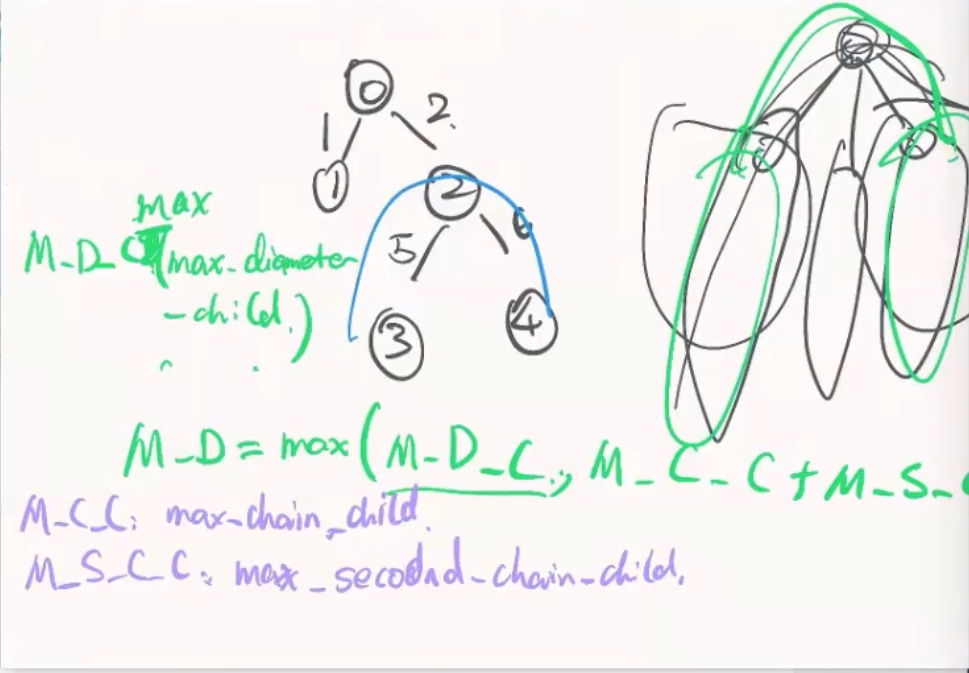 0
1 2.
1
2
5 6
3 4
max
M-D- (max-diameter
-child.)
M-D = max(M-D-C, M-C-C + M-S-C
M-C-C: max-chain-child.
M-S-C-C: max-secodnd-chain-child.